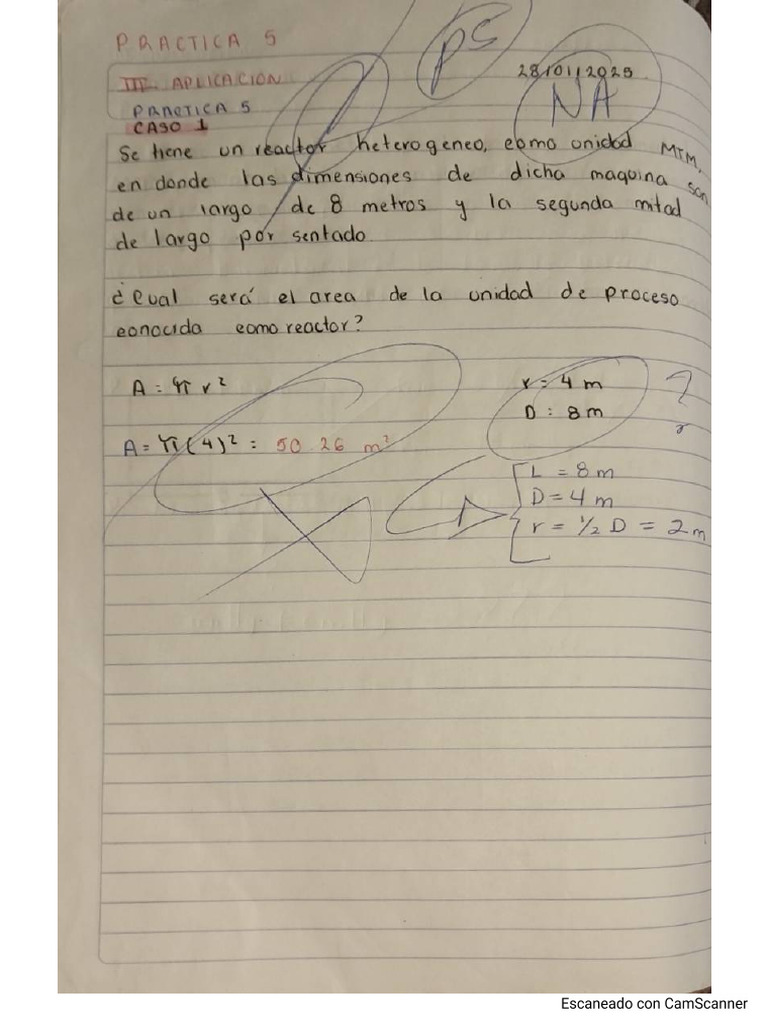 PRACTICA 5
PS
28/01/2025
III. APLICACION
NA
PRACTICA 5
CASO 1
Se tiene un reactor heterogeneo, como unidad MTM,
en donde las dimensiones de dicha maquina son
de un largo de 8 metros y la segunda mitad
de largo por sentado.
¿Cual será el area de la unidad de proceso
conocida como reactor?
A = π r²
r = 4 m
?
D : 8 m
A = π(4)² = 50.26 m²
L = 8 m
D = 4 m
r = ½ D = 2 m
Escaneado con CamScanner